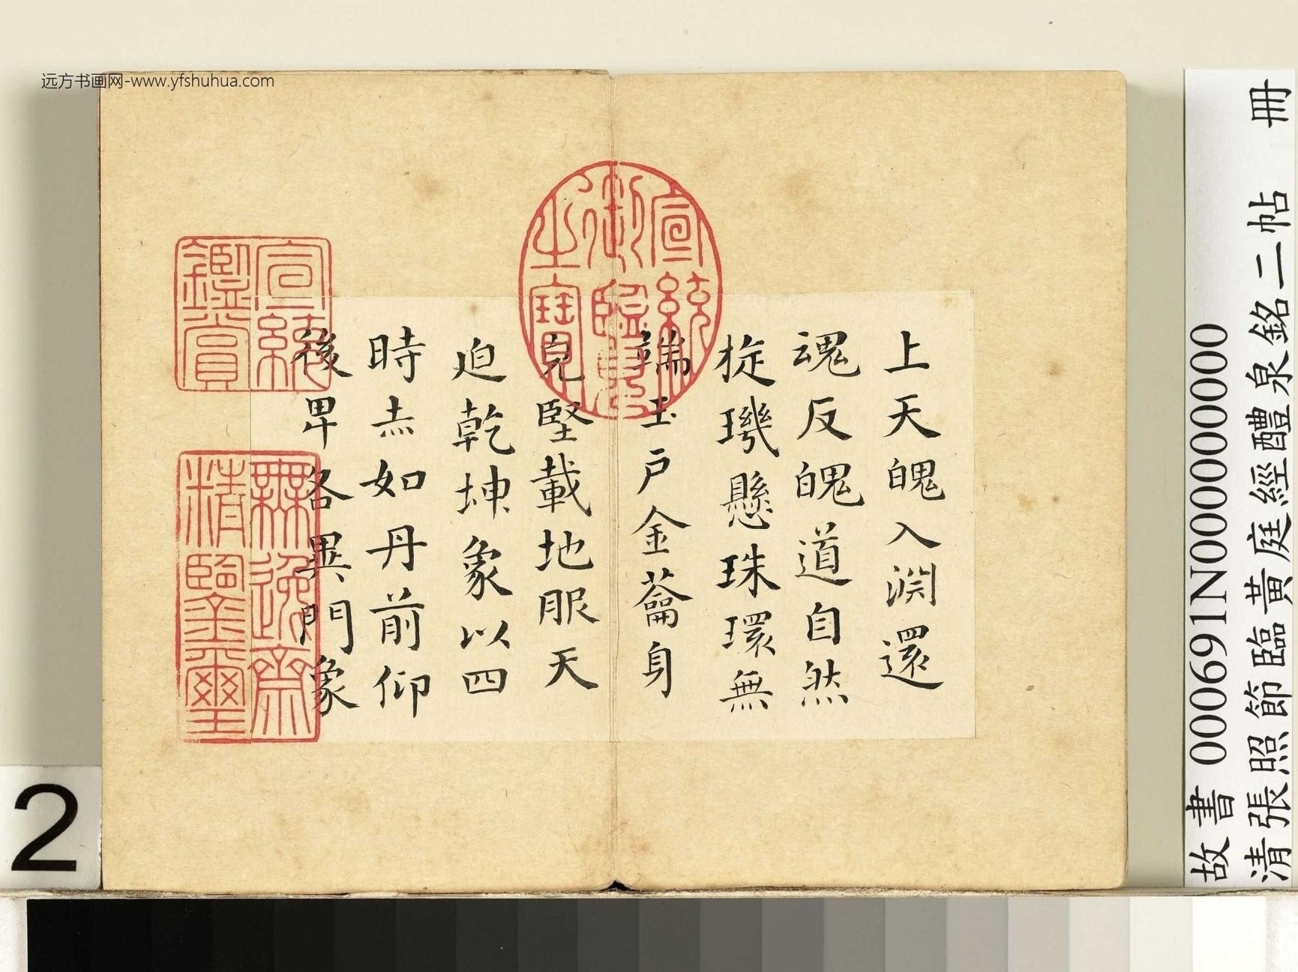 远方书画网-www.yfshuhua.com
故書 000691N000000000
清張照節臨黃庭經醴泉銘二帖 冊
上天魄入渊還
魂反魄道自然
旋璣懸珠環無
端玉戶金蘥身
皃堅載地服天
迫乾坤象以四
時赤如丹前仰
後卑各異門象
宣統御覽之寶
宣統鑑賞
無逸齋精鑒璽
2